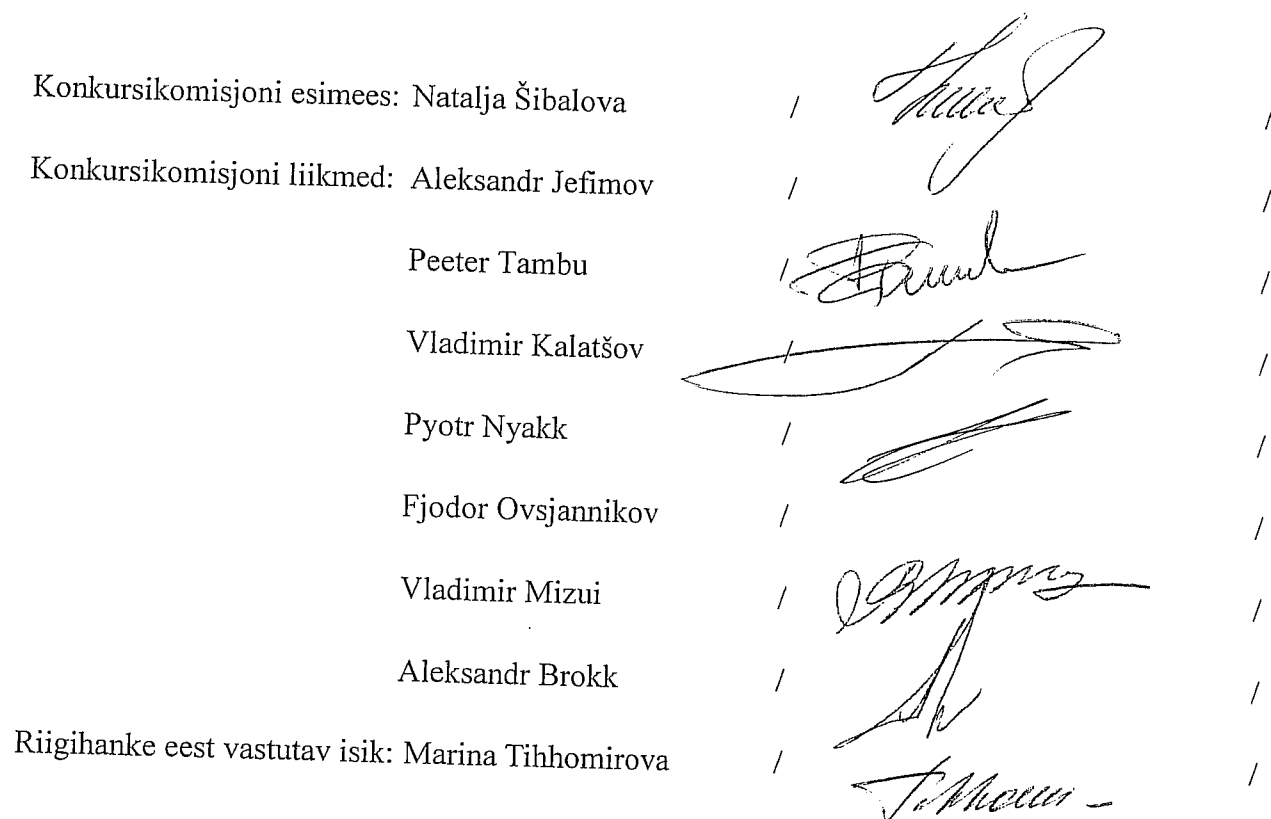 Konkursikomisjoni esimees: Natalja Šibalova / /
Konkursikomisjoni liikmed: Aleksandr Jefimov / /
Peeter Tambu / /
Vladimir Kalatšov / /
Pyotr Nyakk / /
Fjodor Ovsjannikov / /
Vladimir Mizui / /
Aleksandr Brokk / /
Riigihanke eest vastutav isik: Marina Tihhomirova / /